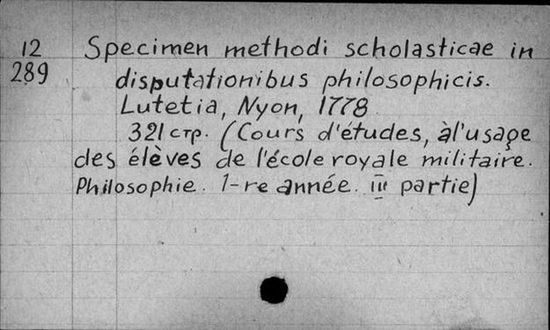 12 Specimen methodi scholasticae in
289 disputationibus philosophicis.
Lutetia, Nyon, 1778
321 стр. (Cours d'études, à l'usage
des élèves de l'école royale militaire.
Philosophie. 1-re année. III partie)